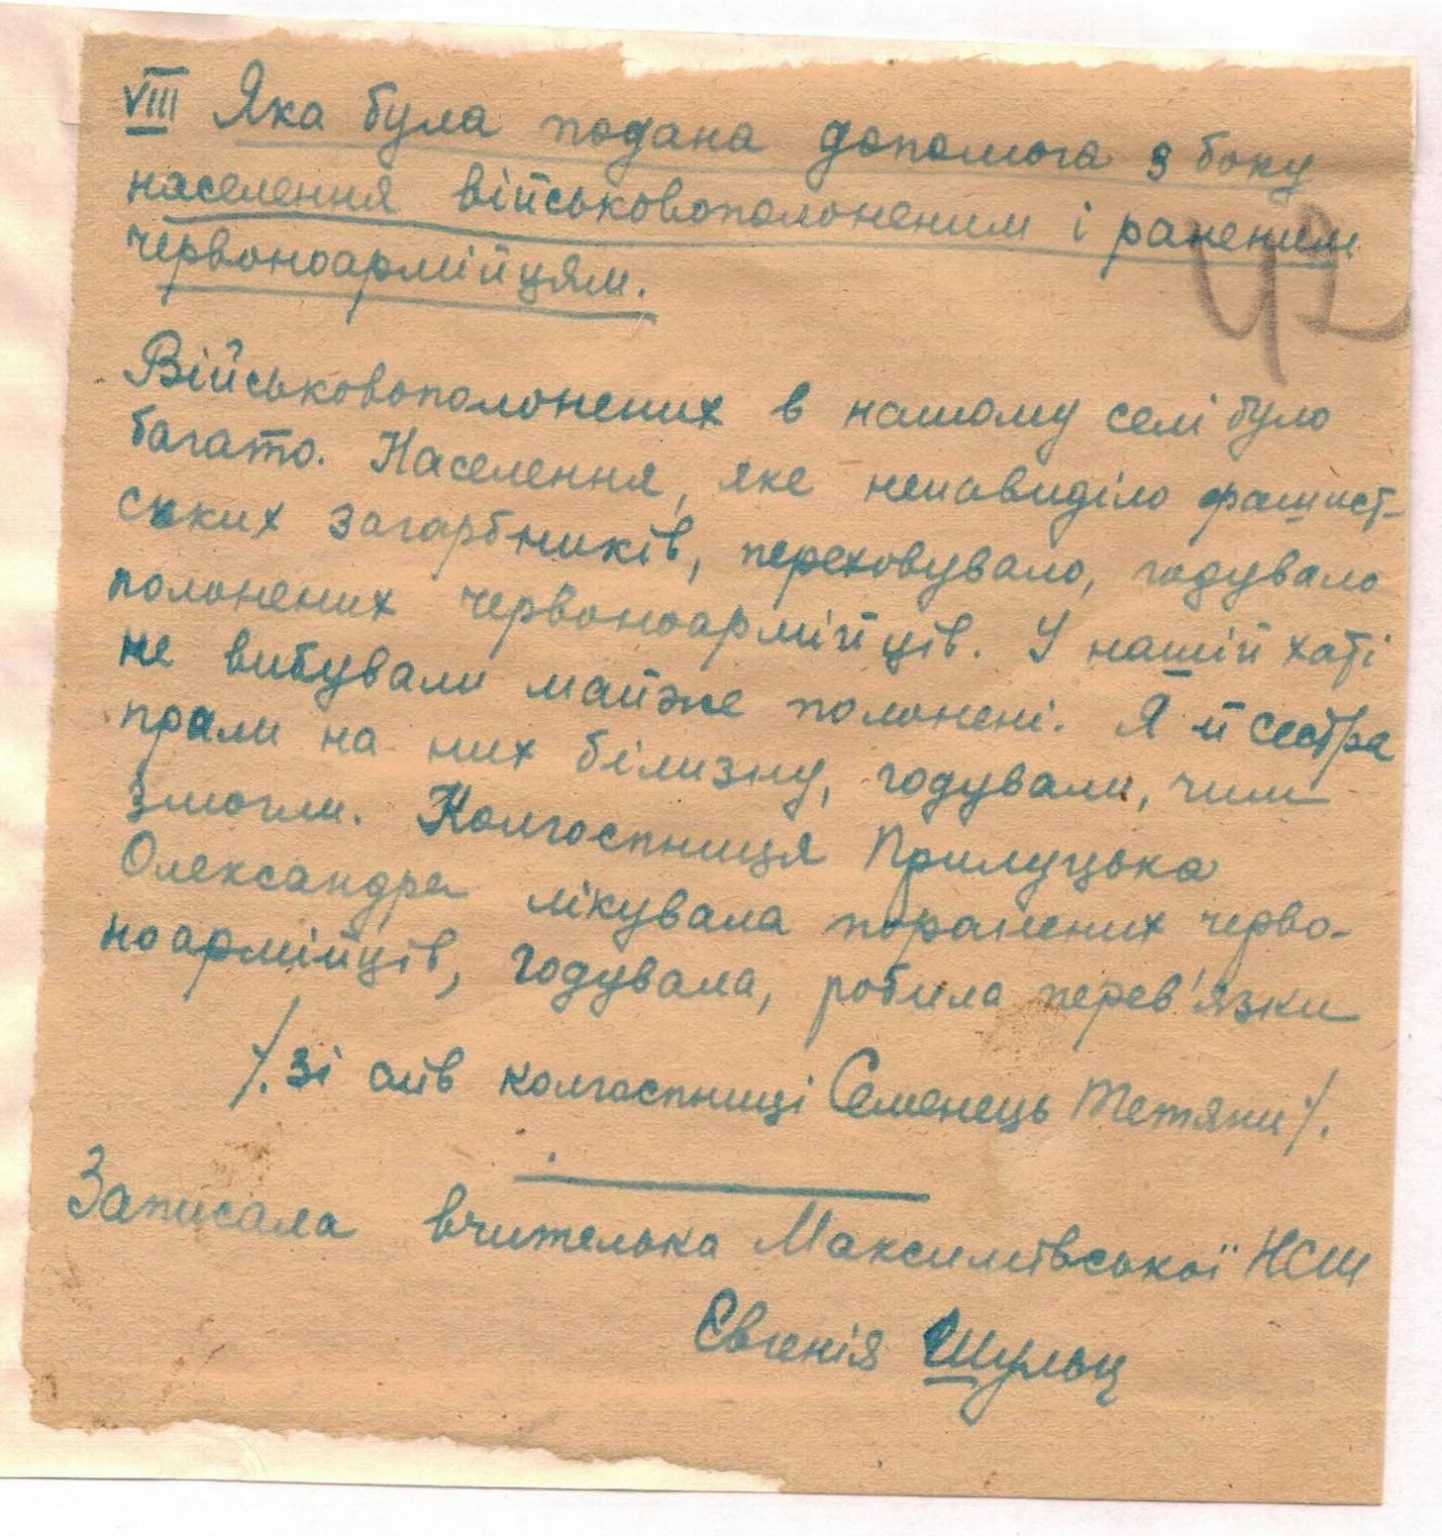 VIII Яка була подана допомога з боку
населення військовополоненим і раненим
червоноармійцям.
42
Військовополонених в нашому селі було
багато. Населення, яке ненавиділо фашист-
ських загарбників, переховувало, годувало
полонених червоноармійців. У нашій хаті
не вибували майже полонені. Я й сестра
прали на них білизну, годували, чим
змогли. Колгоспниця Прилуцька
Олександра лікувала поранених черво-
ноармійців, годувала, робила перев'язки
/. Зі слів колгоспниці Семенець Тетяни /.
Записала вчителька Максимівської НСШ
Євгенія Шульц